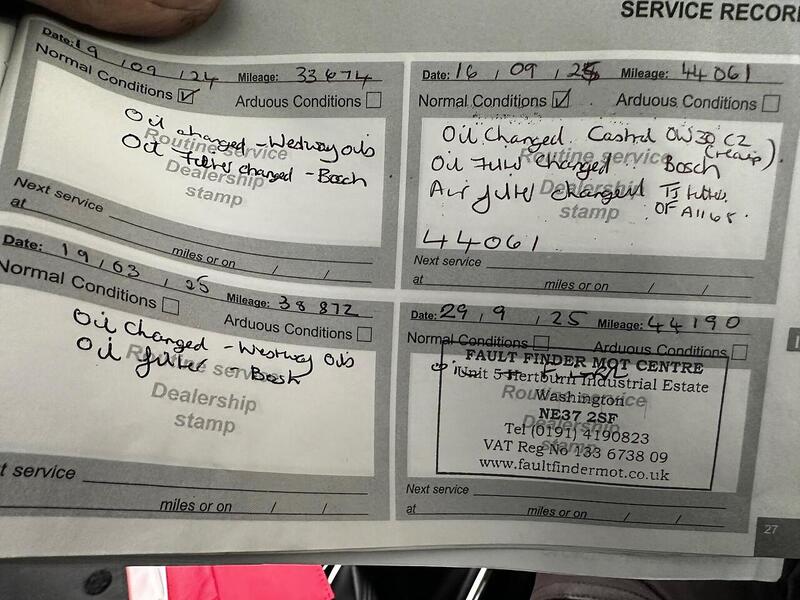 SERVICE RECOR
Date: 19 / 09 / 24 Mileage: 33674
Normal Conditions ☑ Arduous Conditions ☐
Oil changed - Westway oils
Oil Filter changed - Bosch
Routine service
Dealership
stamp
Next service
at miles or on / /
Date: 16 / 09 / 25 Mileage: 44061
Normal Conditions ☑ Arduous Conditions ☐
Oil Changed Castrol 0W30 C2
Oil Filter Changed Bosch
Air filter changed TJ filters
Routine service
Dealership
stamp
44061
Next service
at miles or on / /
Date: 19 / 03 / 25 Mileage: 38872
Normal Conditions ☐ Arduous Conditions ☐
Oil Changed - Westway Oils
Oil filter - Bosch
Routine service
Dealership
stamp
t service
miles or on / /
Date: 29 / 9 / 25 Mileage: 44190
Normal Conditions ☐ Arduous Conditions ☐
FAULT FINDER MOT CENTRE
Unit 5 Hertburn Industrial Estate
Washington
NE37 2SF
Tel (0191) 4190823
VAT Reg No 133 6738 09
www.faultfindermot.co.uk
Routine service
Dealership
stamp
Next service
at miles or on / /
27